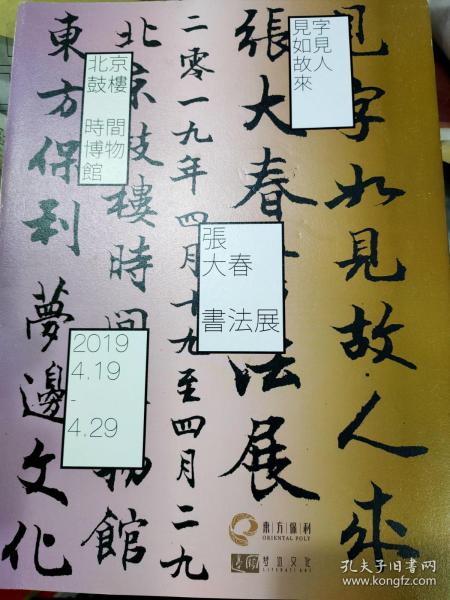 見字如見故人來
張大春書法展
二零一九年四月十九至四月二九
北京鼓樓時間物館
東方保利 夢邊文化
見字
如見
故人
來
北京
鼓樓
時間
博物
館
張
大春
書法展
2019
4.19
-
4.29
東方保利
ORIENTAL POLY
梦边文化
LITERATI ART
孔夫子旧书网
www.kongfz.com